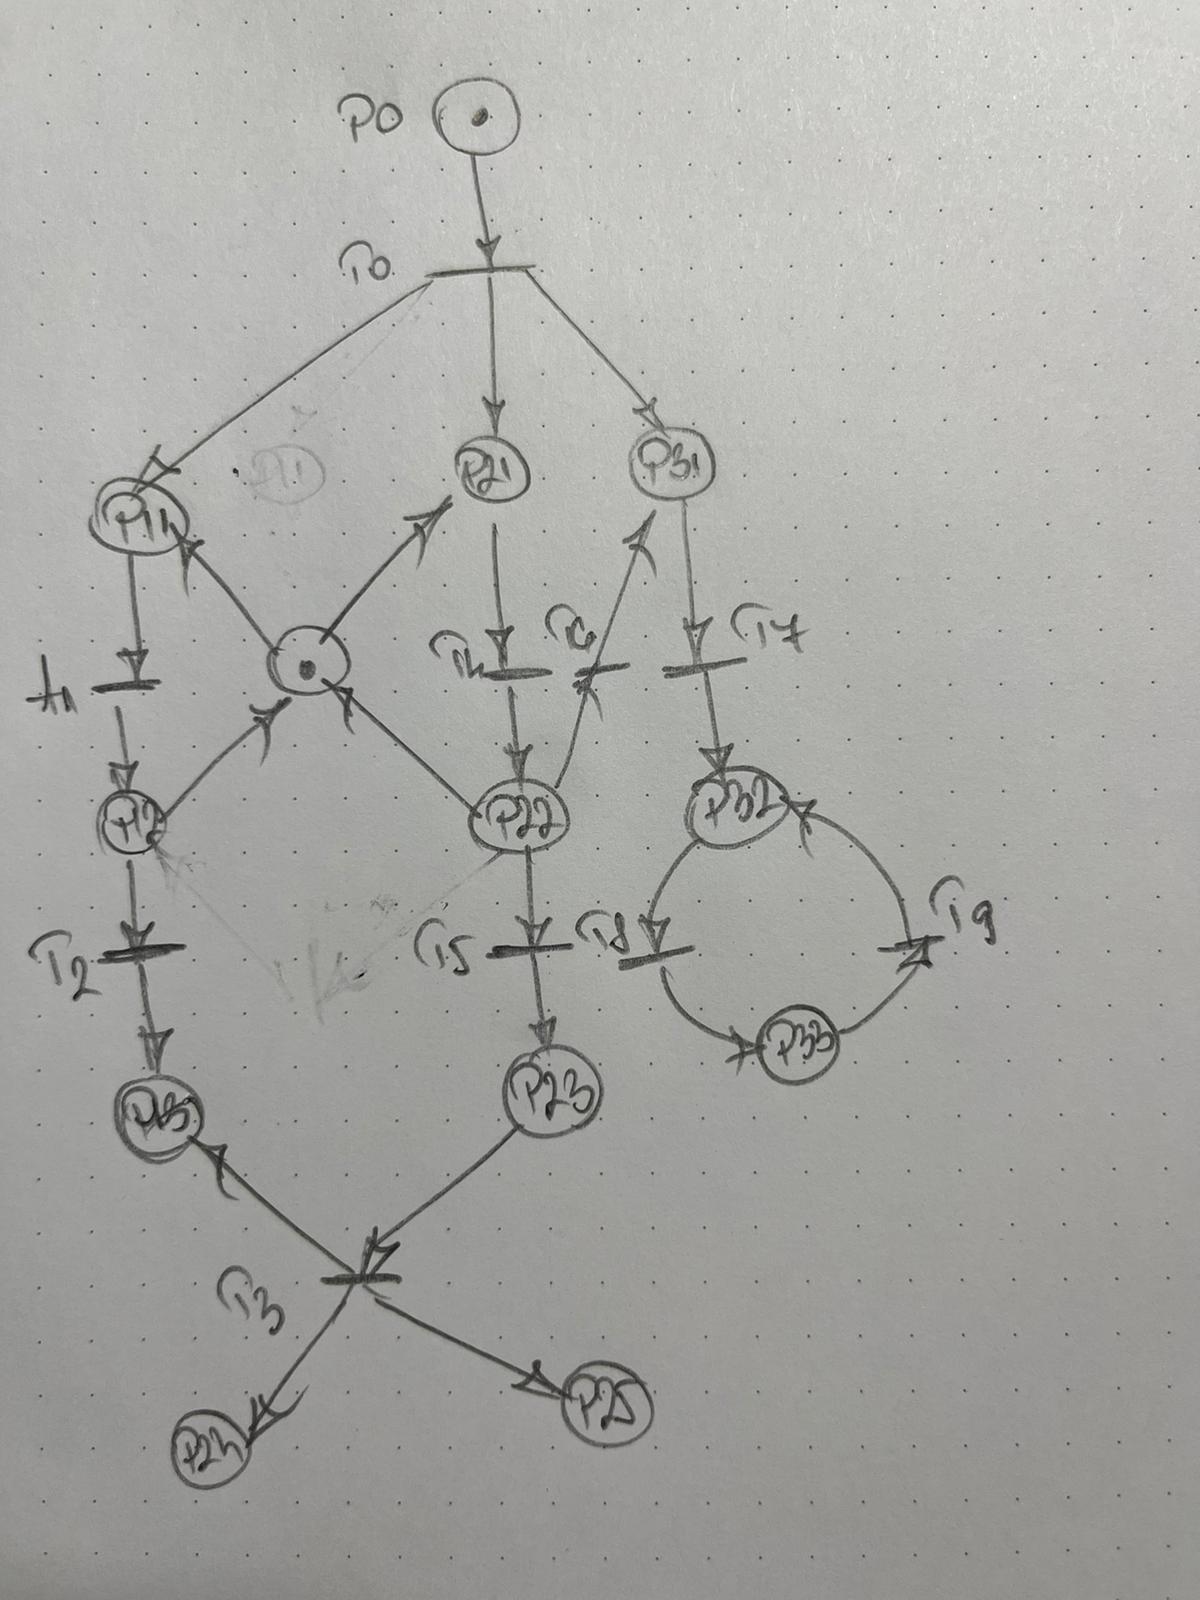 P0
T0
P11
P11
P21
P31
t1
T4
T6
T7
P12
P22
P32
T2
T5
T8
T9
P13
P23
P33
T3
P24
P25